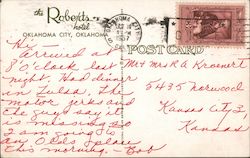 the Roberts
hotel
OKLAHOMA CITY, OKLAHOMA
OKLAHOMA CITY
POST CARD
Hi,
Arrived at
8 O'clock last
night. Had dinner
in Tulsa, The
motor jerks and
the guy say it
is missing so
I am going to
an Olds place
this morning - Bob
Mr + Mrs R A Kroenert
5435 Norwood
Kansas City 3,
Kansas